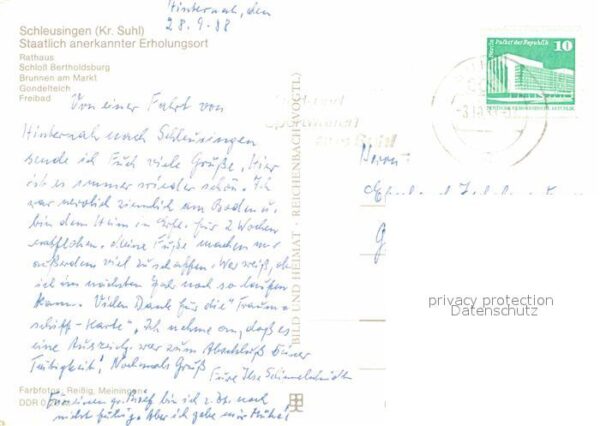 Hinternah, den
28.9.88
Schleusingen (Kr. Suhl)
Staatlich anerkannter Erholungsort
Rathaus
Schloß Bertholdsburg
Brunnen am Markt
Gondelteich
Freibad
Von einer Fahrt von
Hinternah nach Schleusingen
sende ich Euch viele Grüße. Hier
ist es immer wieder schön. Ich
war nervlich ziemlich am Boden u.
bin dem Heim in für 2 Wochen
entflohen. Meine Füße machen mir
außerdem viel zu schaffen. Wer weiß, ob
ich im nächsten Jahr noch so laufen
kann. Vielen Dank für die "Traum-
schiff-Karte". Ich nehme an, daß es
eine Auszeich. war zum Abschluß Deiner
Tätigkeit! Nochmals Gruß
Eure Ilse
Farbfotos: Reißig, Meiningen
DDR
Für einen gr. Brief bin ich z. Zt. noch
nicht fähig. Aber ich gebe mir Mühe!
BILD UND HEIMAT · REICHENBACH (VOGTL)
Berlin Palast der Republik
10
DEUTSCHE DEMOKRATISCHE REPUBLIK
Herrn
privacy protection
Datenschutz